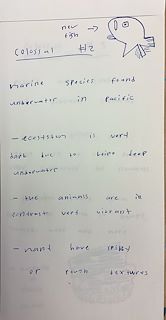 new
fish
Colossal #2
marine species found
underwater in Pacific
- ecosystem is very
dark due to being deep
underwater
- the animals are in
contrast very vibrant
- have spiky
or rough textures